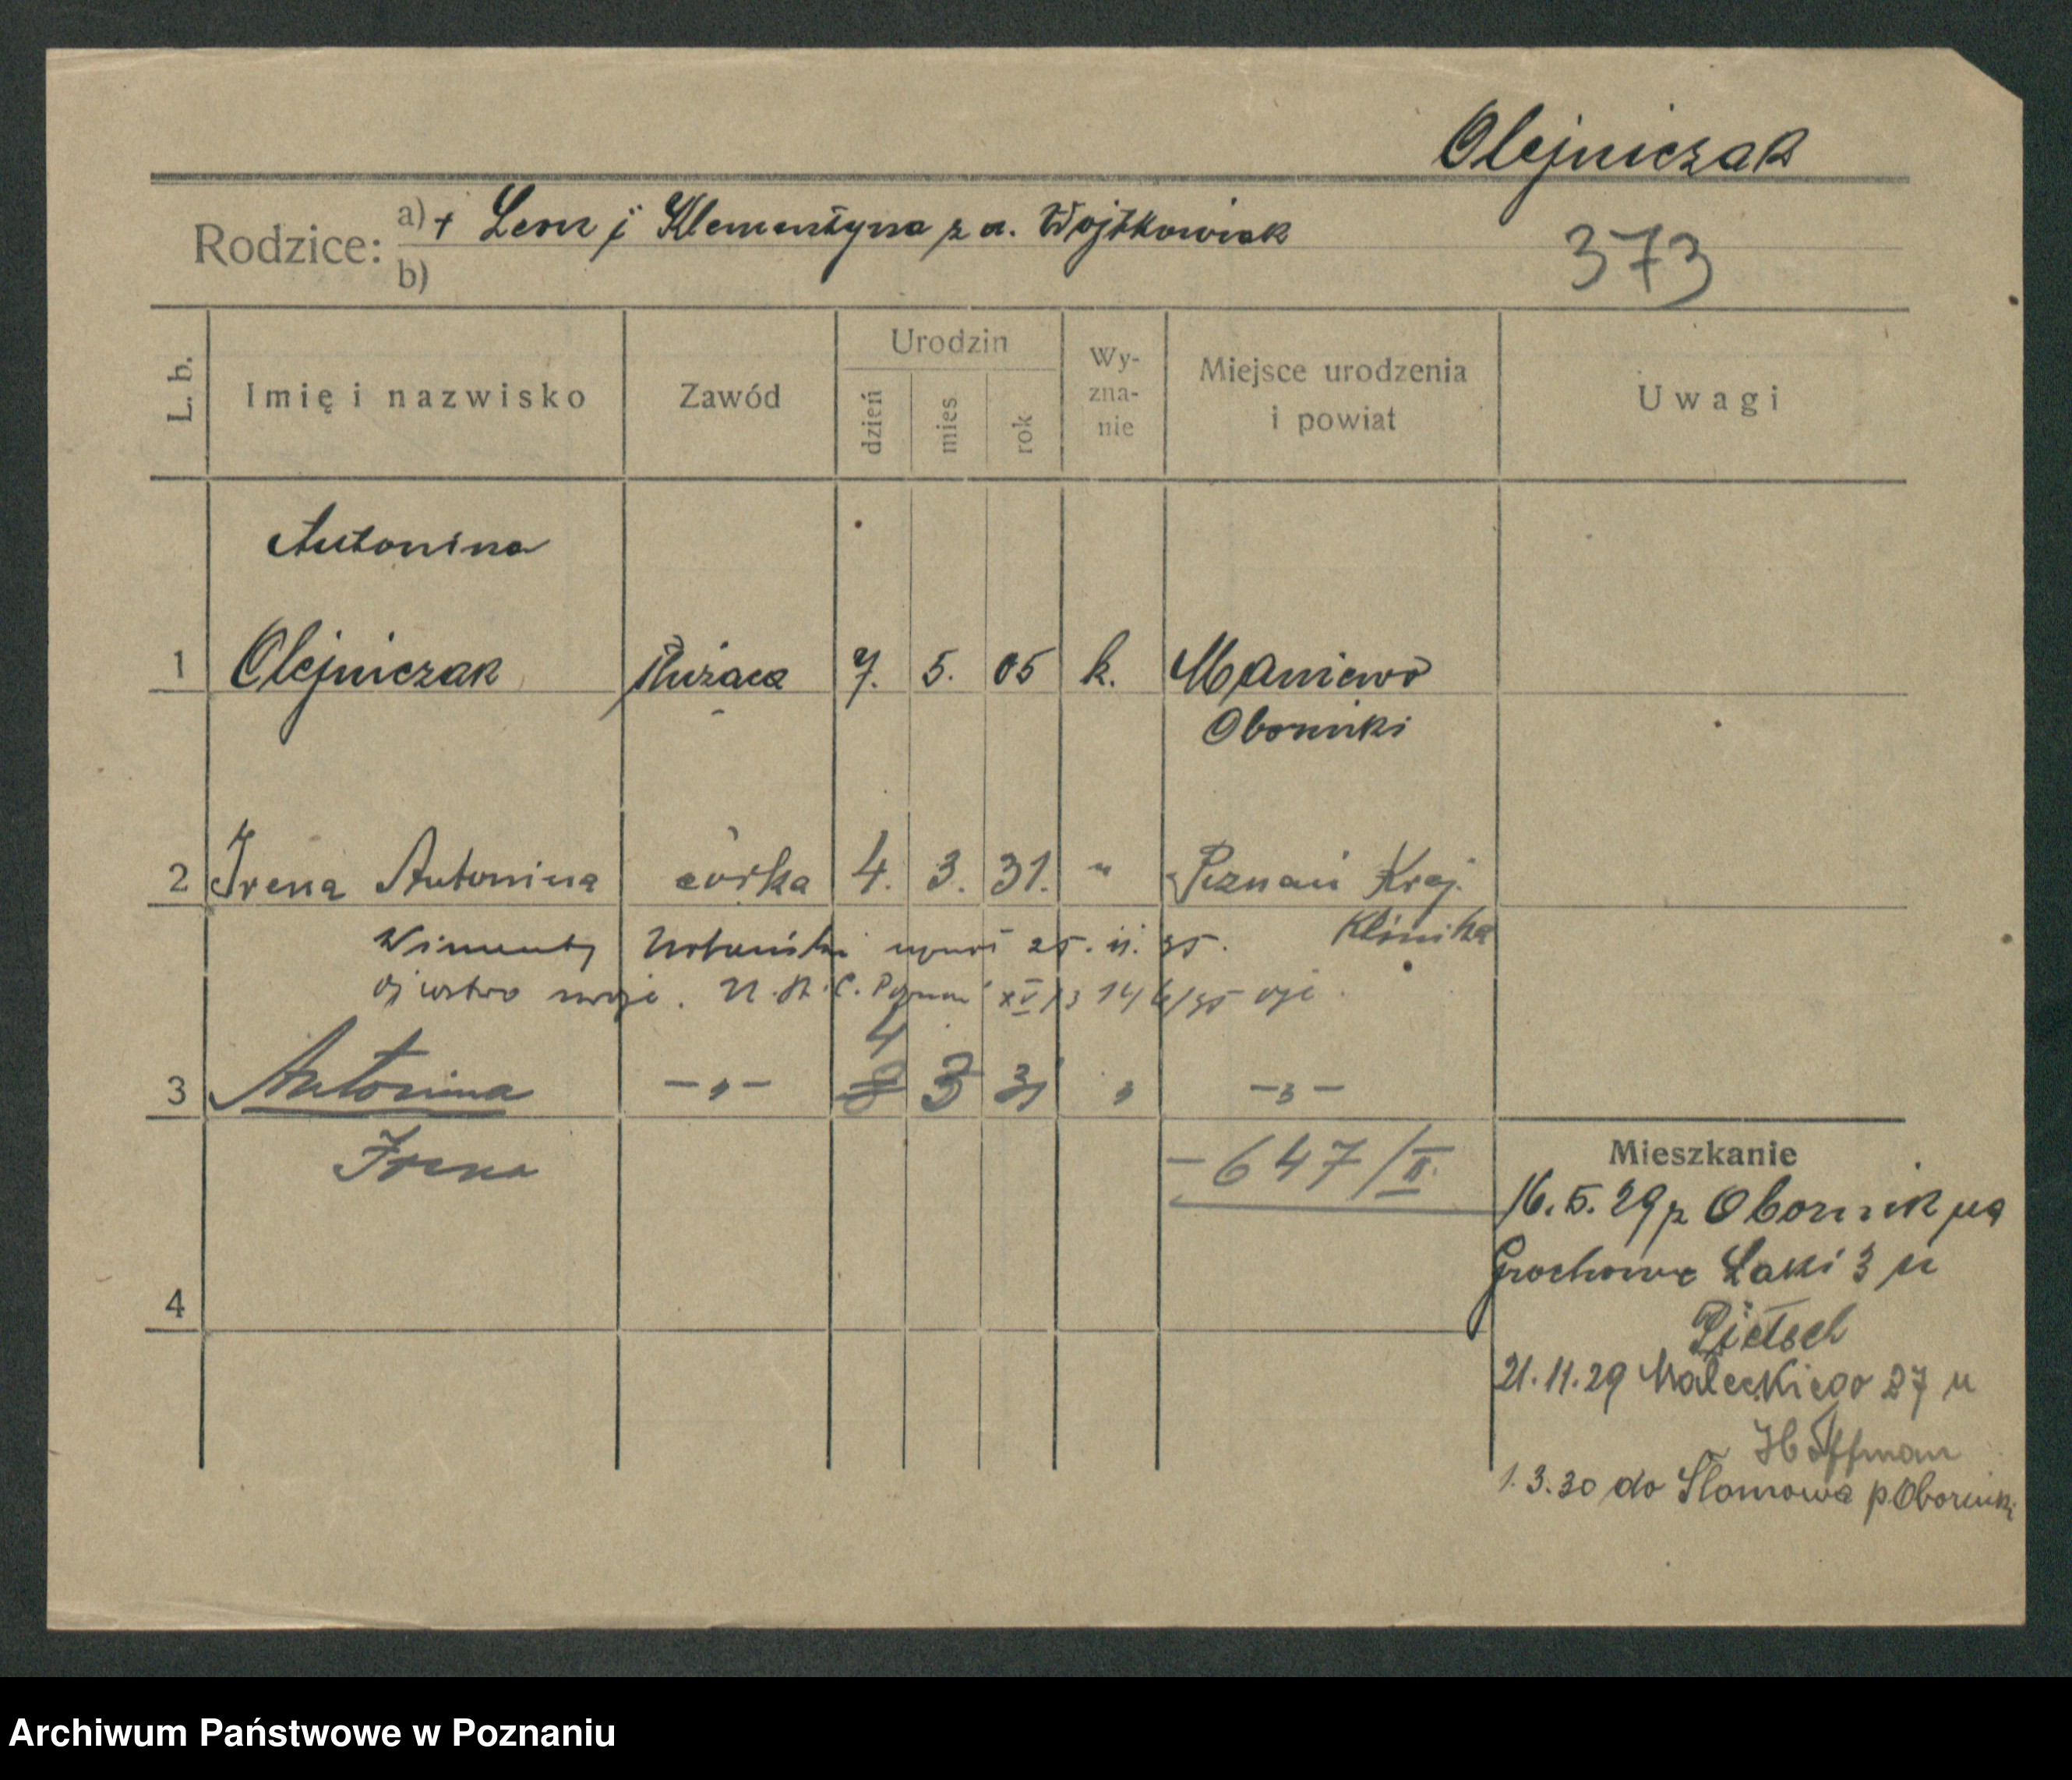 Olejniczak
Rodzice: a) + Leon i Klementyna z d. Wojtkowiak
b)
373
L. b.
Imię i nazwisko
Zawód
Urodzin
dzień
mies
rok
Wy-
zna-
nie
Miejsce urodzenia
i powiat
Uwagi
Antonina
1 Olejniczak służąca 7. 5. 05 k. Maniewo
Oborniki
2 Irena Antonina córka 4. 3. 31. " Poznań Kraj.
Klinika
Urbański 25. 11. 35.
ojcostwo swoje. Poznań XV/13 14/6/35
4
3 Antonina -"- 3 3 31 " -"-
Irena
- 647/II.
4
Mieszkanie
16. 5. 29 z Obornik na
Grochowe Łąki 3 u
Pietsch
21. 11. 29 Małeckiego 27 u
Hoffman
1. 3. 30 do Słomowa p. Oborniki
Archiwum Państwowe w Poznaniu